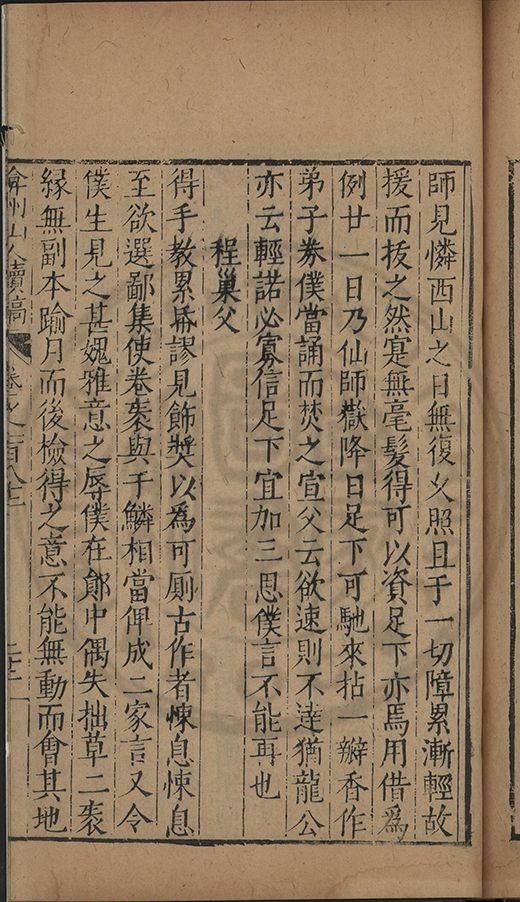 師見憐西山之日無復久照且于一切障累漸輕故
援而拔之然寔無毫髮得可以資足下亦焉用借為
例廿一日乃仙師嶽降日足下可馳來拈一瓣香作
弟子券僕當誦而焚之宣父云欲速則不達猶龍公
亦云輕諾必寡信足下宜加三思僕言不能再也
程巢父
得手教累𢃄謬見飾奬以為可厠古作者悚息悚息
至欲選鄙集使卷袠與于鱗相當俾成二家言又令
僕生見之甚媿雅意之辱僕在鄖中偶失拙草二袠
緣無副本踰月而後檢得之意不能無動而會其地
弇州山人續稿
卷之一百八十三
二十二